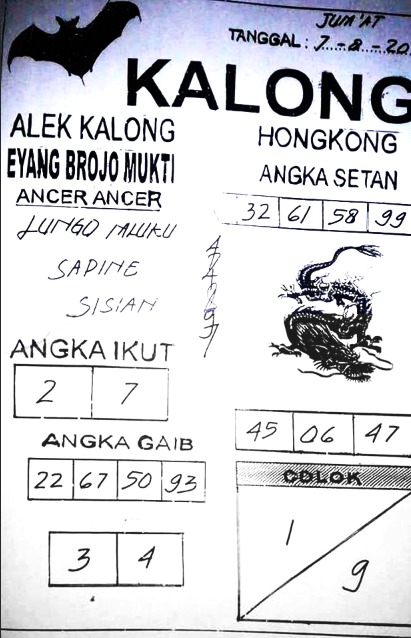 JUM'AT
TANGGAL : 7 - 8 - 20
KALONG
ALEK KALONG
EYANG BROJO MUKTI
ANCER ANCER
LUNGO MLUKU
SAPINE
SISIAN
HONGKONG
ANGKA SETAN
32 61 58 99
ANGKA IKUT
2 7
ANGKA GAIB
22 67 50 93
3 4
45 06 47
COLOK
1
9